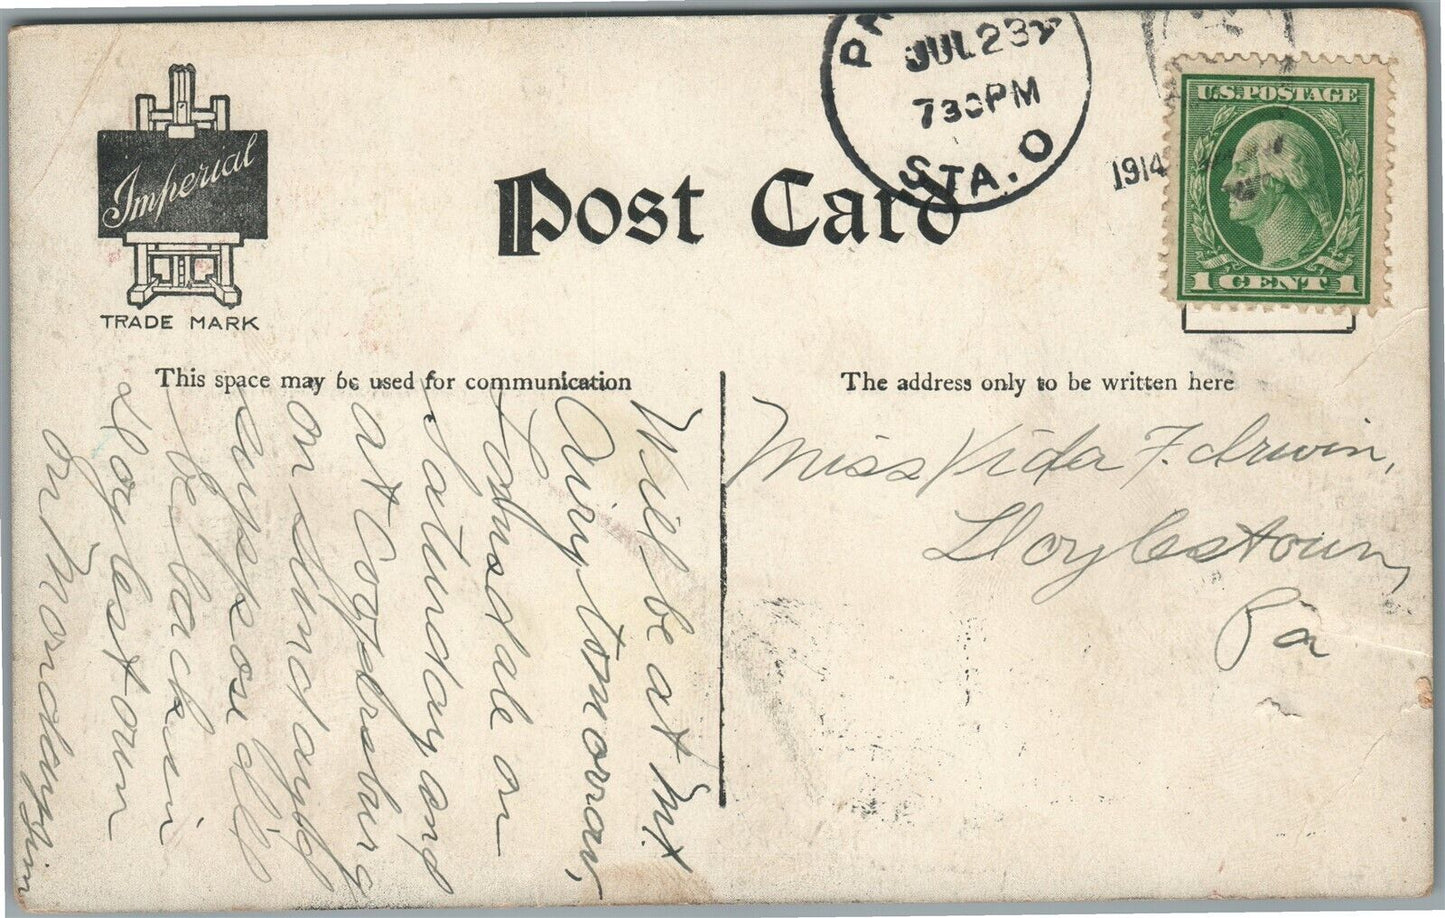 Imperial
TRADE MARK
Post Card
JUL 23
730PM
STA. O
1914
U.S. POSTAGE
1 CENT 1
This space may be used for communication
The address only to be written here
Will be at Mt.
Airy tomorrow,
Lansdale on
Saturday and
at Coopersburg
on Sunday.
suppose I'll
be back in
Doylestown
on Monday
Jim
Miss Vida F. Irwin,
Doylestown,
Pa